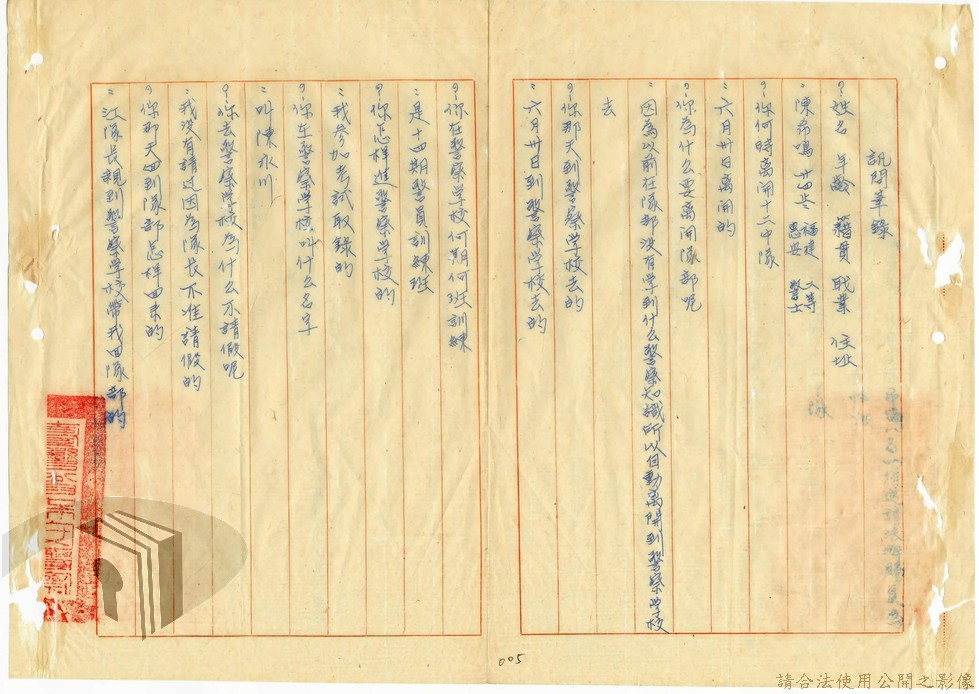 訊問筆錄
？姓名 年齡 籍貫 職業 住址
：陳希鳴 廿四 福建惠安 二等警士
？你何時离開十二中隊
：六月卅日离開的
？你為什么要离開隊部呢
：因為以前在隊部没有学到什么警察知識所以自動离開到警察学校
去
？你那天到警察学校去的
：六月卅日到警察学校去的
？你在警察学校何期何班訓練
：是十四期警員訓練班
？你怎样進警察学校的
：我参加考試取錄的
？你在警察学校叫什么名字
：叫陳永川
？你去警察学校為什么不請假呢
：我没有請过因為隊長不准請假的
？你那天回到隊部怎样回来的
：江隊長親到警察学校帶我回隊部的
005
請合法使用公開之影像